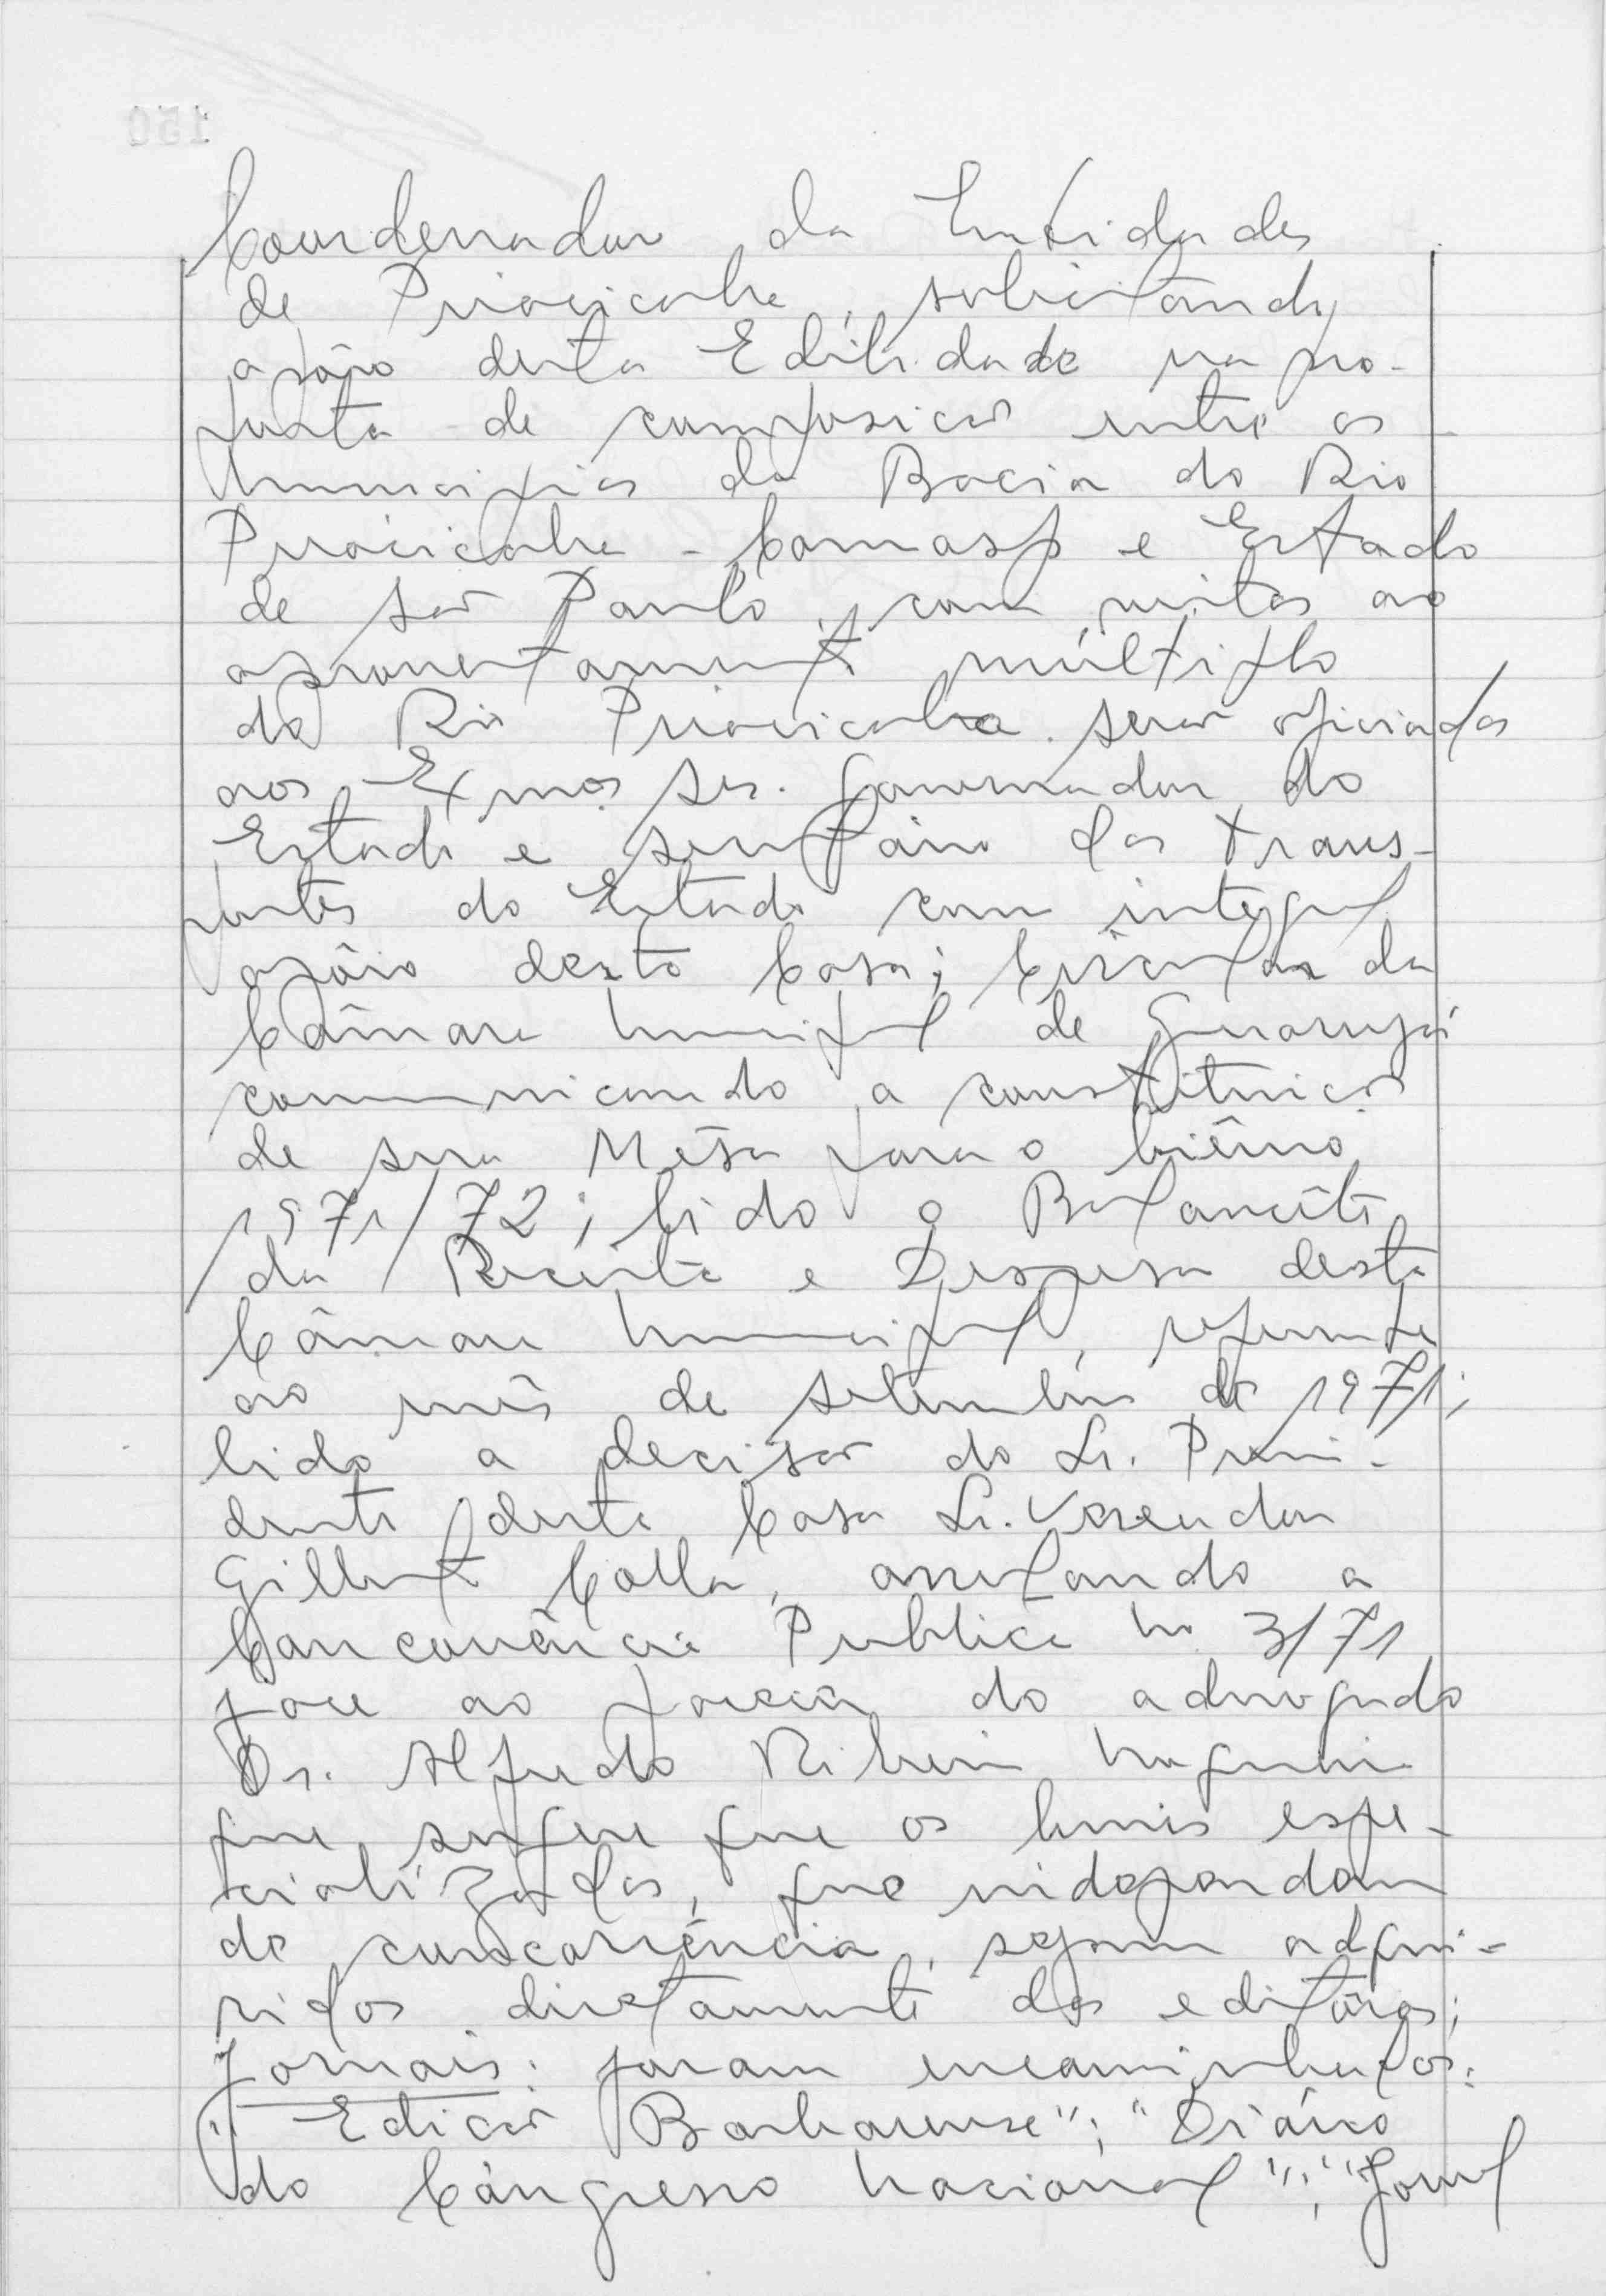 Coordenador da Entidades
de Piracicaba, solicitando
apôio desta Edilidade na pro-
posta de composição entre os
Municípios da Bacia do Rio
Piracicaba - Comasp e Estado
de São Paulo, com vistas ao
aproveitamento múltiplo
do Rio Piracicaba. Serão oficiados
aos Exmos Srs. Governador do
Estado e Secretário dos Trans-
portes do Estado com integral
apôio desta Casa; Circular da
Câmara Municipal de Guarujá
comunicando a constituição
de sua Mêsa para o biênio
1971/72; lido o Balancête
da Receita e Despesa desta
Câmara Municipal, referente
ao mês de setembro de 1971;
lido a decisão do Sr. Presi-
dente desta Casa Sr. Vereador
Gilberto Colla, anulando a
Concorrência Publica no 3/71
face ao parecer do advogado
Dr. Alfredo Ribeiro
que sugere que os livros espe-
cializados, que independam
de concorrência, sejam adqui-
ridos diretamente das editôras;
Jornais: foram encaminhados:
"Edição Barbarense"; "Diário
do Congresso Nacional"; "Jornal
150